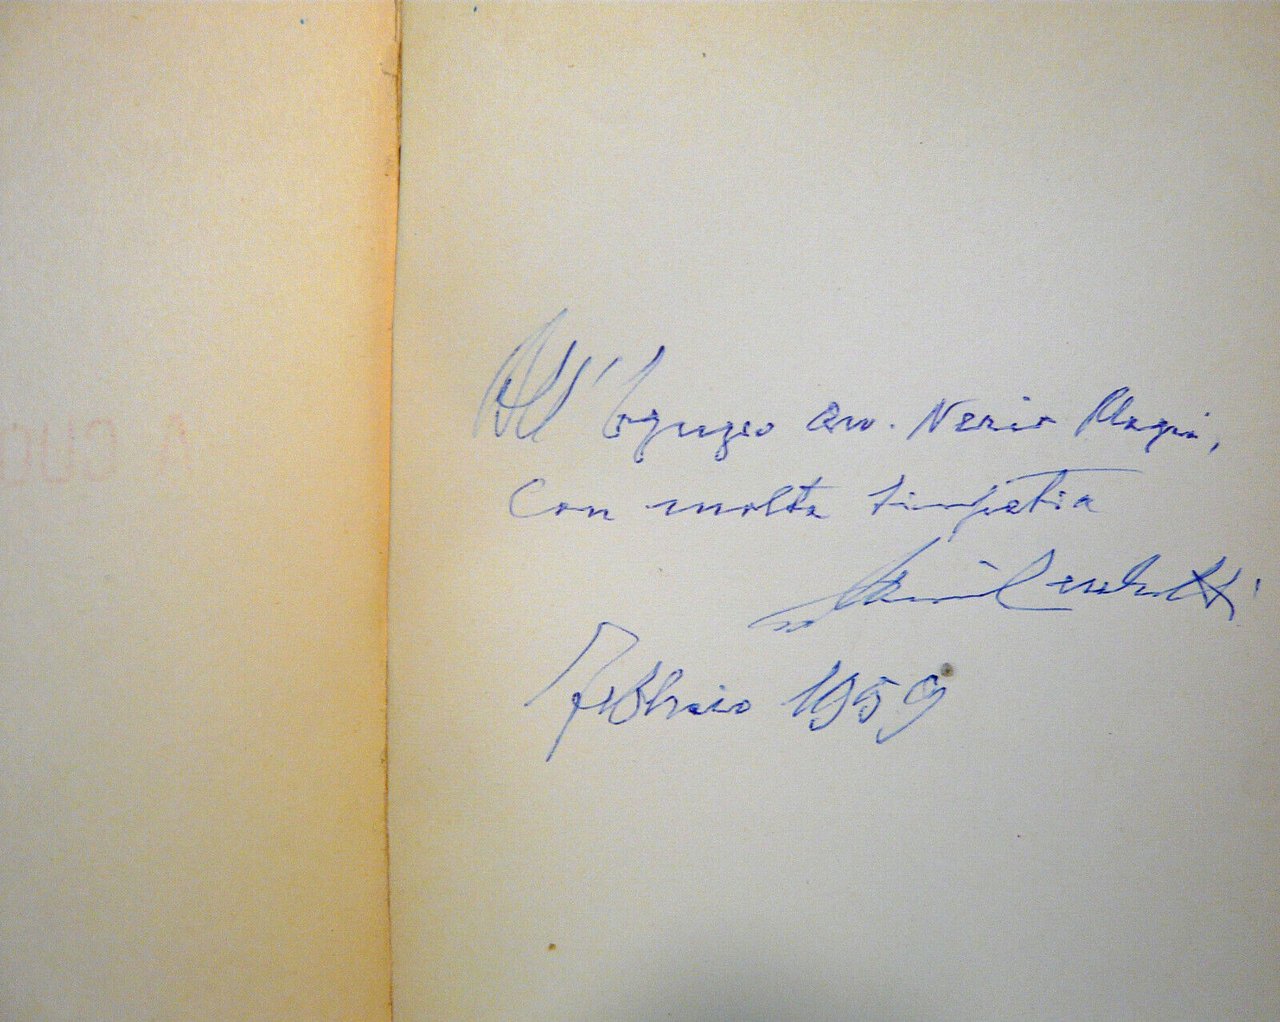 All'Egregio avv. Nerio
con molta simpatia
Febbraio 1959